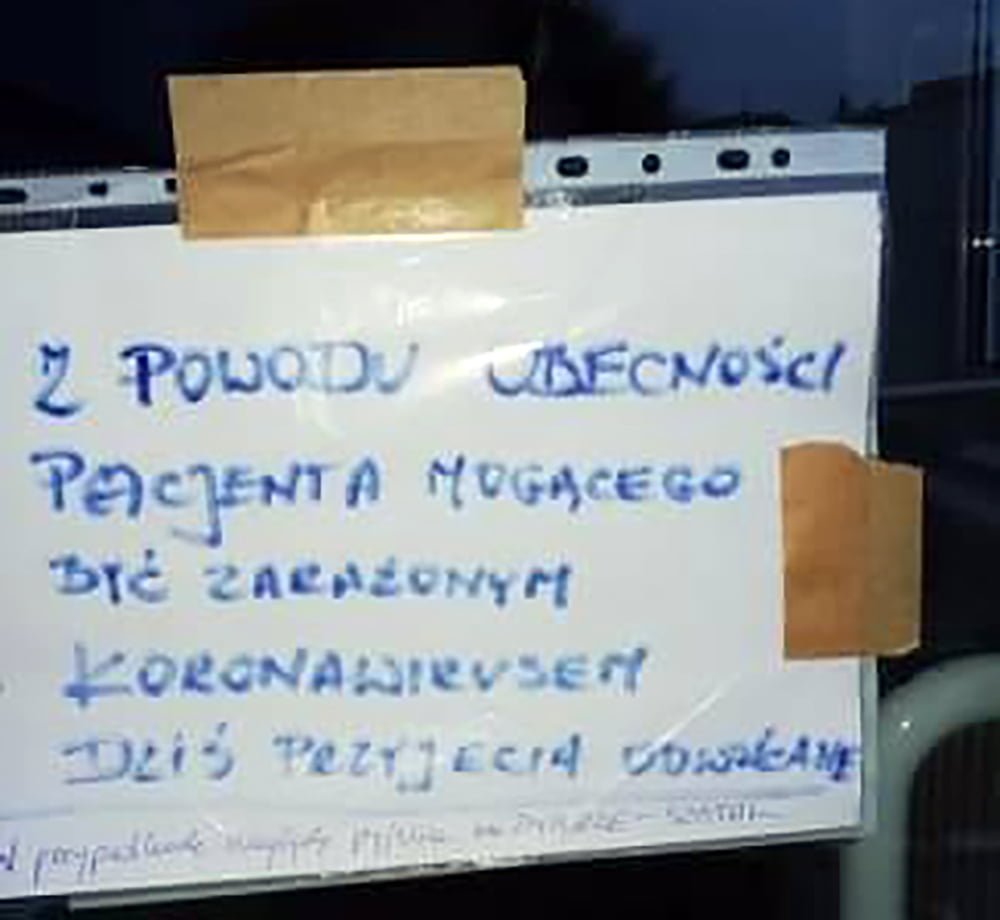 Z POWODU OBECNOŚCI
PACJENTA MOGĄCEGO
BYĆ ZARAŻONYM
KORONAWIRUSEM
DZIŚ PRZYJĘCIA ODWOŁANE
przypadkach